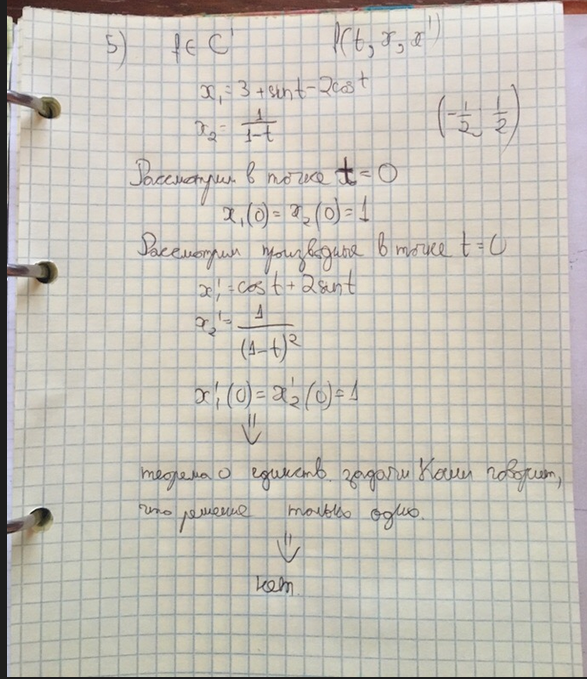 5) f ∈ C' f(t, x, x')
x₁ = 3 + sint - 2cost
x₂ = 1/(1-t) (-1/2; 1/2)
Рассмотрим в точке t = 0
x₁(0) = x₂(0) = 1
Рассмотрим производные в точке t = 0
x₁' = cost + 2sint
x₂' = 1/(1-t)²
x₁'(0) = x₂'(0) = 1
⇓
теорема о единств. задачи Коши говорит,
что решение только одно.
⇓
нет